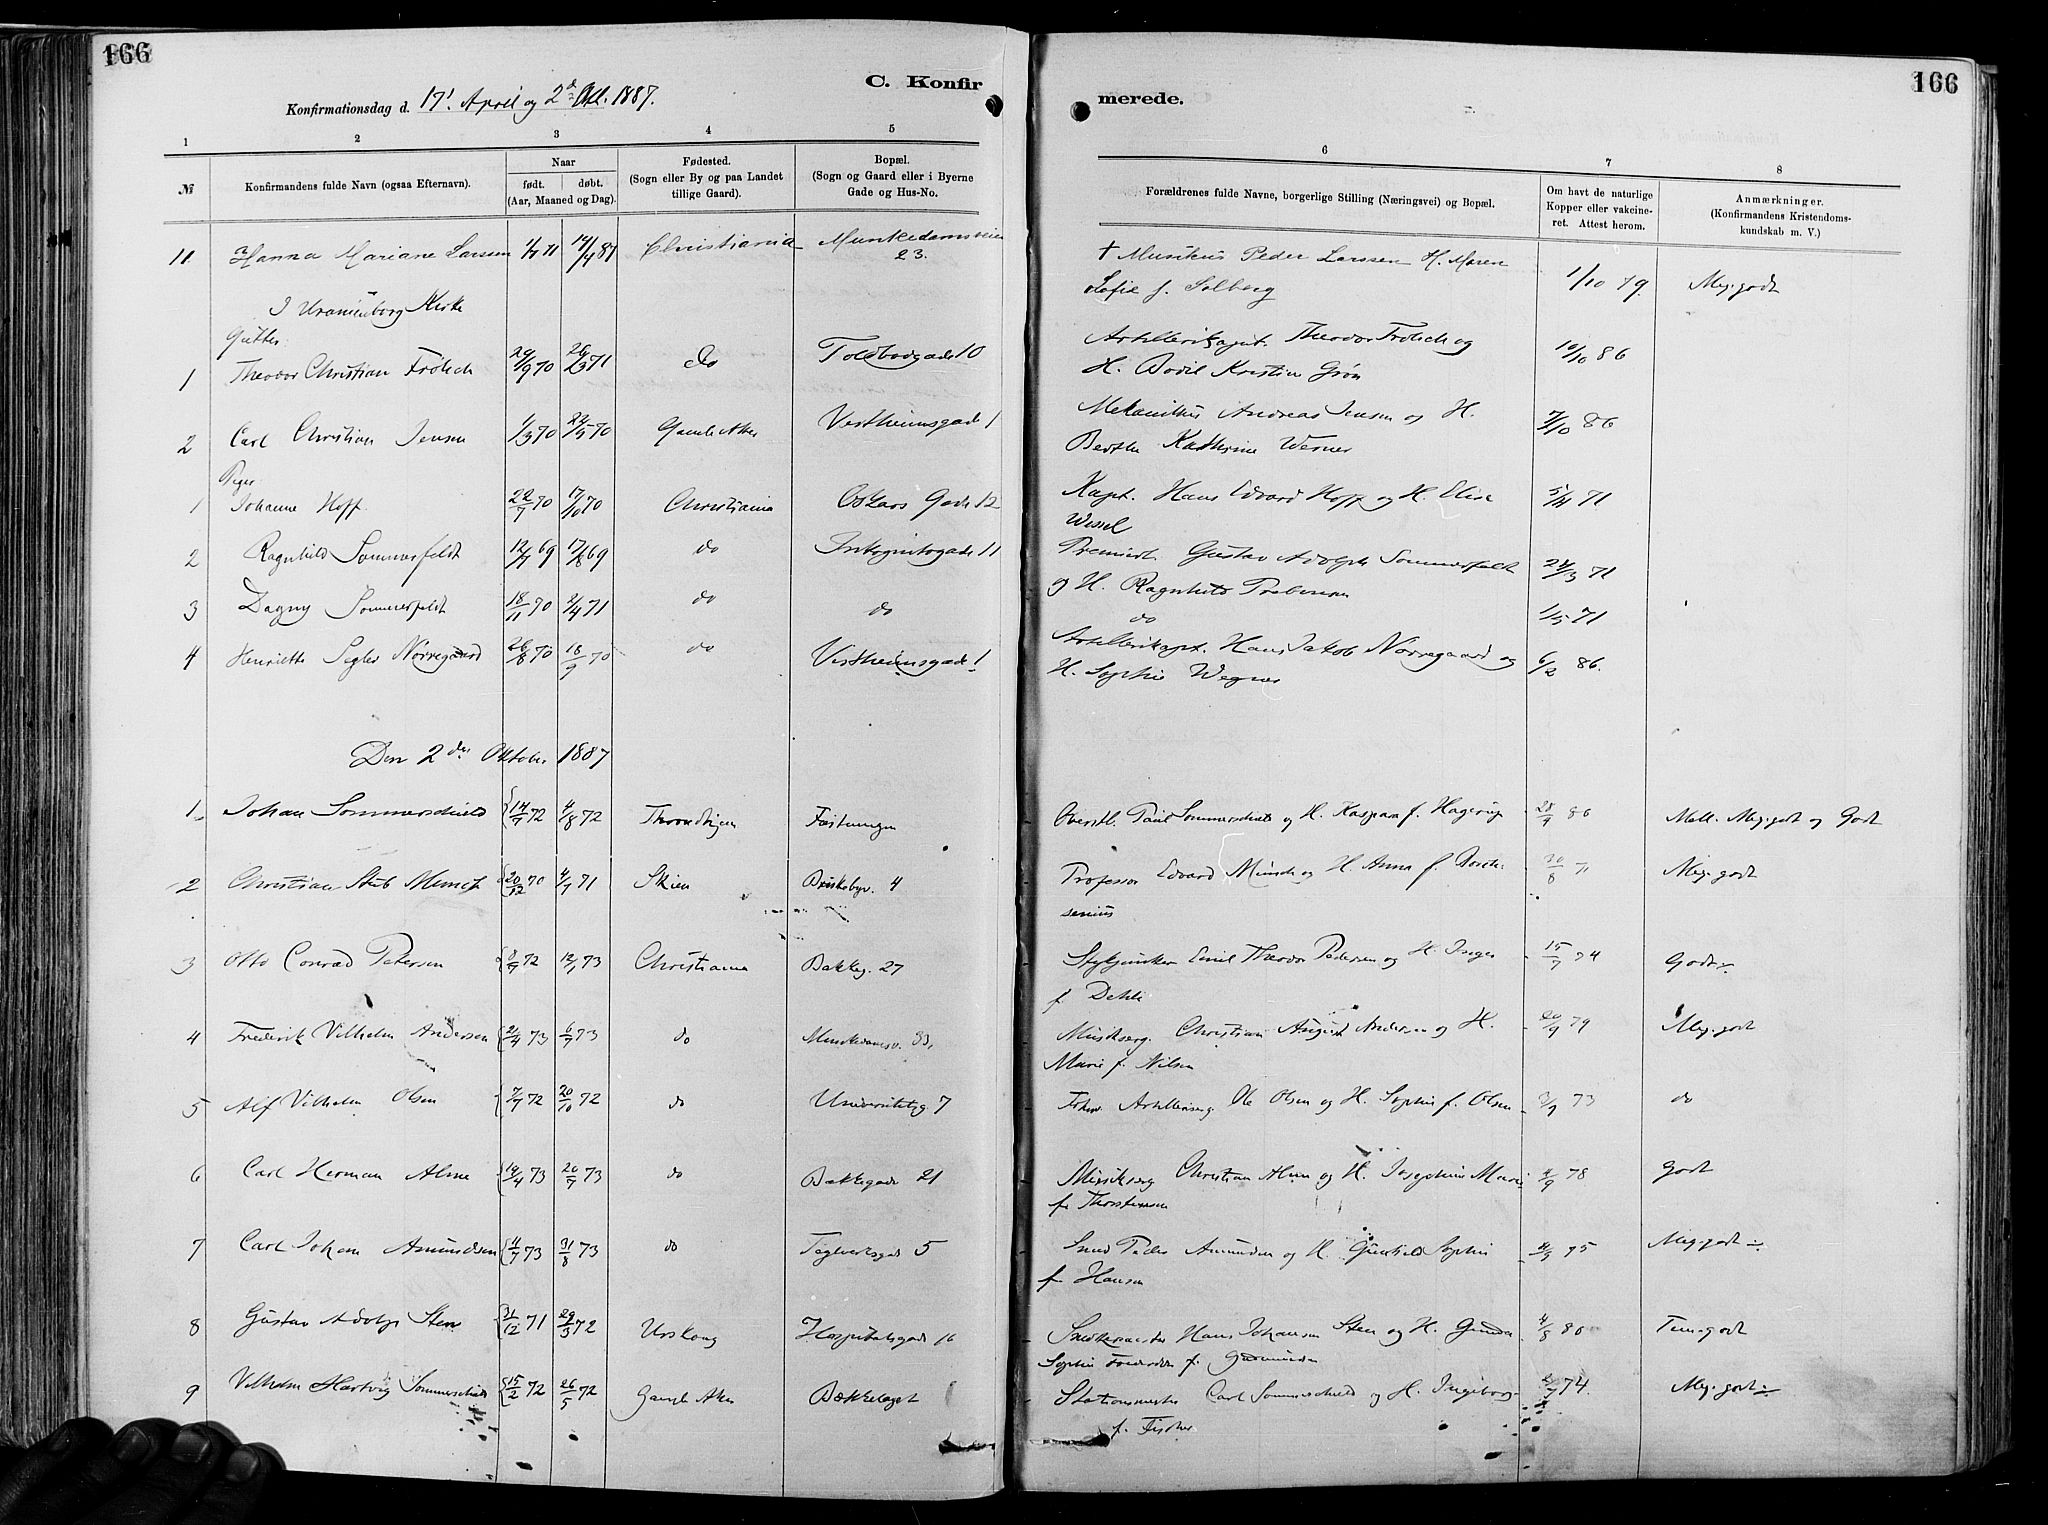 166
166
C. Konfirmerede.
Konfirmationsdag d. 17' April og 2den Okt. 1887.
1 2 3 4 5 6 7 8
№ Konfirmandens fulde Navn (ogsaa Efternavn). Naar født. døbt. (Aar, Maaned og Dag). Fødested. (Sogn eller By og paa Landet tillige Gaard). Bopæl. (Sogn og Gaard eller i Byerne Gade og Hus-No. Forældrenes fulde Navne, borgerlige Stilling (Næringsvei) og Bopæl. Om havt de naturlige Kopper eller vakcineret. Attest herom. Anmærkninger. (Konfirmandens Kristendomskundskab m. V.)
11 Hanna Mariane Larsen 1/7 71 14/4 87 Christiania Munkedamsveien 23. † Musikus Peder Larssen H. Maren
Sofie f. Solberg 1/10 79. Meg. godt
I Uranienborg Kirke
Gutter
1 Theodor Christian Frölich 29/9 70 26/3 71 do Toldbodgade 10 Artillerikapt. Theodor Frölich og
H. Bodil Kristine Grøn 10/10 86
2 Carl Christian Jensen 1/3 70 22/5 70 Gamle Aker Vestheimsgade 1 Mekanikus Andreas Jensen og H.
Berthe Kathrine Werner 7/10 86
Piger
1 Johanne Hoff 22/7 70 17/10 70 Christiania Oskars Gade 12 Kapt. Hans Edvard Hoff og H. Elise
Wessel 71
2 Ragnhild Sommerfeldt 69 69 do Inkognitogade 11 Premierl. Gustav Adolph Sommerfeldt
og H. Ragnhild Prebensen 24/3 71
3 Dagny Sommerfeldt 18/11 70 2/4 71 do do do 1/5 71
4 Henriette Segler Nörregaard 26/8 70 18/9 70 do Vestheimsgade 1 Artillerikapt. Hans Jakob Nörregaard og
H. Sophie Wegner 6/2 86.
Den 2den Oktober 1887
1 Johan Sommerschield 14/7 72 4/8 72 Throndhjem Fæstningen Oberstl. Paul Sommerschield og H. Kaspara f. Hagerup 28/9 86 Mell. Meg. godt og Godt
2 Christian Stub Munch 20/12 70 4/7 71 Skien Briskebyv. 4 Professor Edvard Münch og H. Anna f. Borchsenius 30/8 71 Meg. godt
3 Otto Conrad Petersen 8/9 72 12/1 73 Christiania Bakkeg. 27 Stykjunker Emil Theodor Pedersen og H. Inger
f. Dehli 15/7 74 Godt
4 Frederik Vilhelm Andersen 2/4 73 6/7 73 do Munkedamsv. 33. Musikserg. Christian August Andersen og H.
Marie f. Nilsen 20/9 79 Meg. godt
5 Alf Vilhelm Olsen 7/7 72 20/10 72 do Universitetsg 7 Artilleriserg. Ole Olsen og H. Sophie f. Olsen 3/9 73 do
6 Carl Herman Alme 14/4 73 20/7 73 do Bakkegade 21 Musikserg Christian Alme og H. Josephine Marie
f. Thorstensen 4/9 78 Godt
7 Carl Johan Amundsen 4/7 73 31/8 73 do Teglverksgad 5 Smed Peder Amundsen og H. Gunhild Sophie
f. Hansen Meg. godt
8 Gustav Adolf Sten 31/12 71 29/3 72 Urskoug Hospitalsgade 16 Snekkermester Hans Johansen Sten og H. Gunda
Sophie f. Gudmundsen 4/8 80 Tem. godt
9 Vilhelm Hartvig Sommerschield 15/2 72 26/5 72 Gamle Aker Bækkelaget Stationsmester Carl Sommerschield og H. Ingeborg
f. Fischer 74. Meg. godt